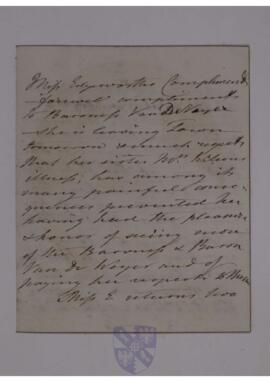 Miss Edgeworths Compliments
farewel compliments
to Baroness Van De Weyer
She is leaving Town
tomorrow & much regrets
that her sister Mrs Wilsons
illness, has among its
many painful conse-
quences prevented her
having had the pleasure
& honor of seeing more
of the Baroness & Baron
Van de Weyer and of
paying her respects to them
Miss E. returns two